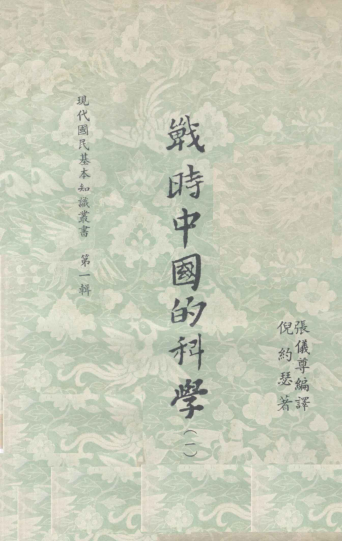 張儀尊編譯
倪約瑟著
戰時中國的科學(一)
現代國民基本知識叢書 第一輯